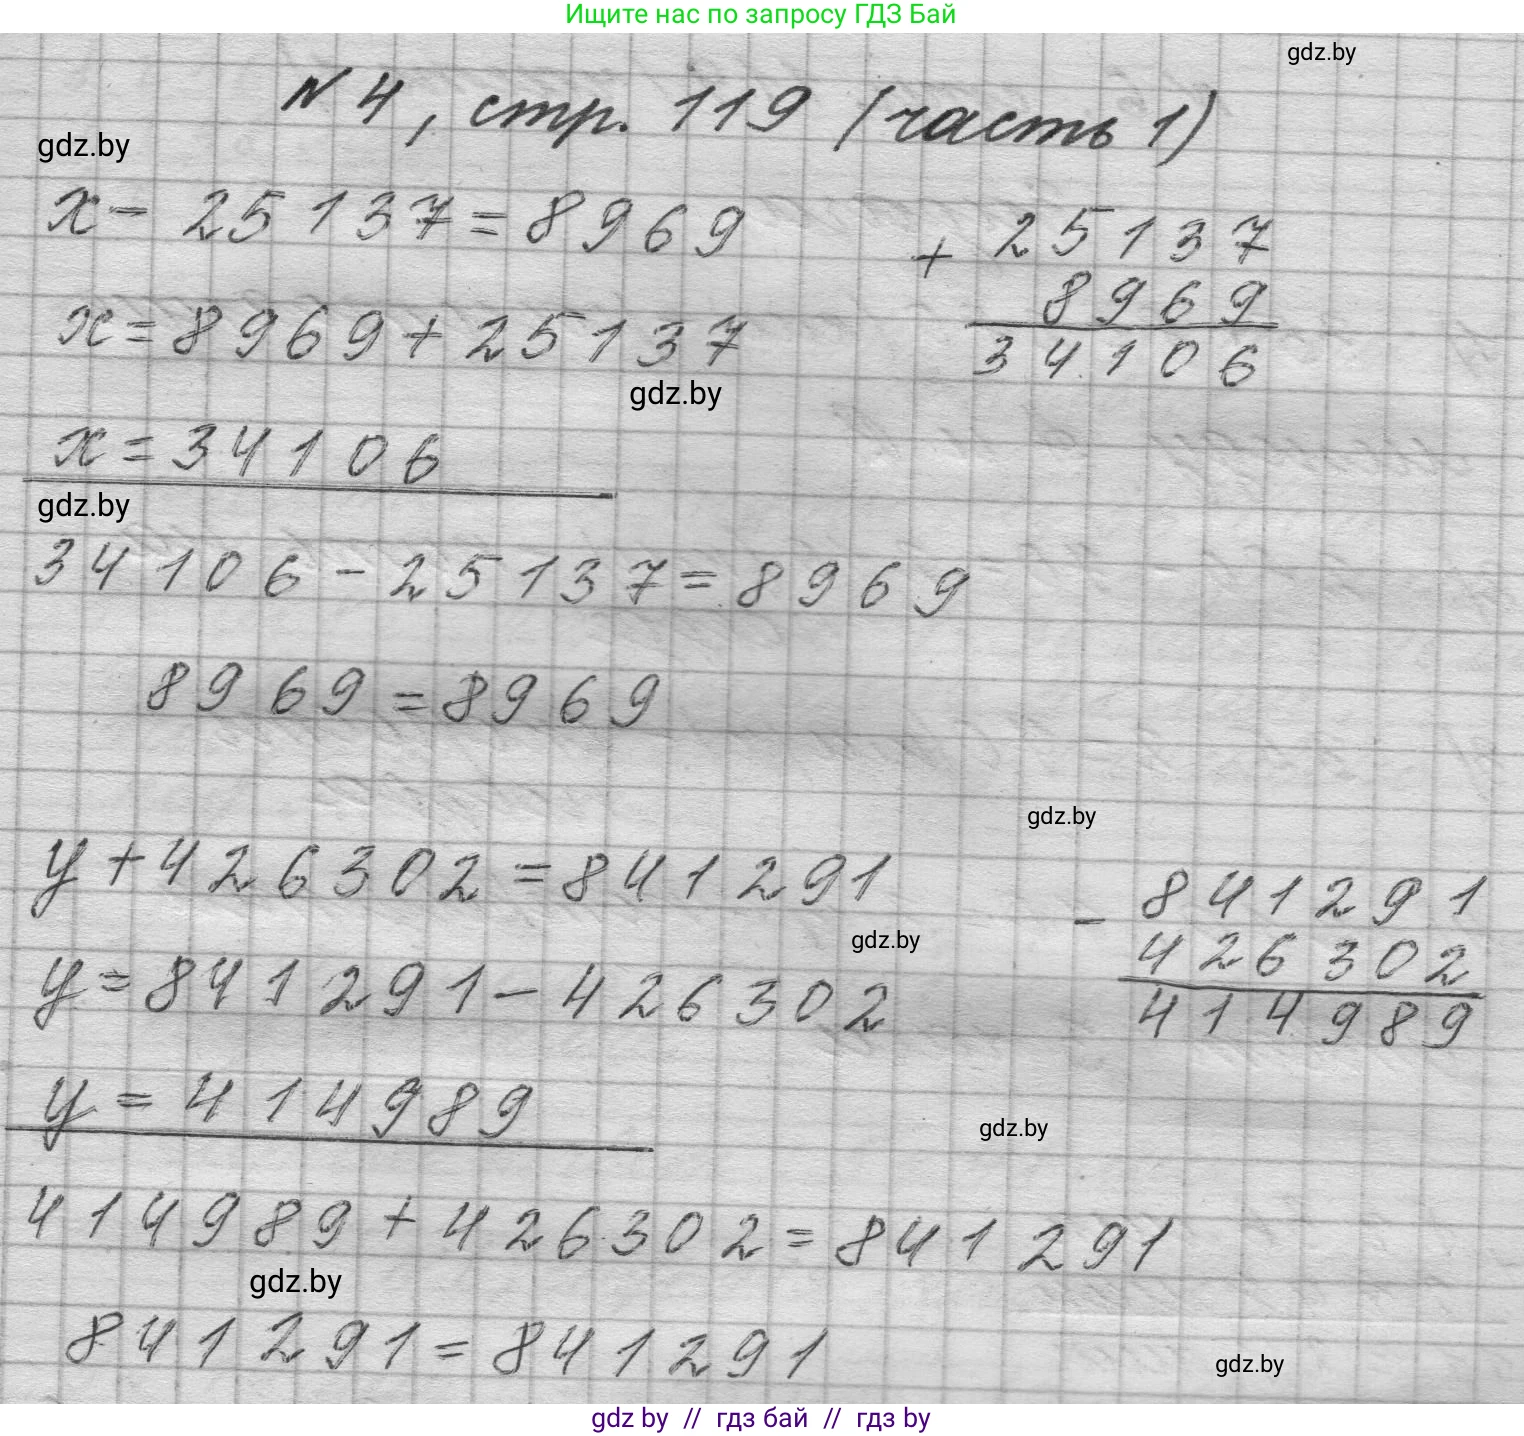 Ищите нас по запросу ГДЗ Бай
gdz.by
N 4, стр. 119 (часть 1)
gdz.by
x - 25137 = 8969
x = 8969 + 25137
gdz.by
x = 34106
gdz.by
34106 - 25137 = 8969
8969 = 8969
+ 25137
8969
34106
gdz.by
y + 426302 = 841291
gdz.by
y = 841291 - 426302
y = 414989
- 841291
426302
414989
gdz.by
414989 + 426302 = 841291
gdz.by
841291 = 841291
gdz.by
gdz by // гдз бай // гдз by